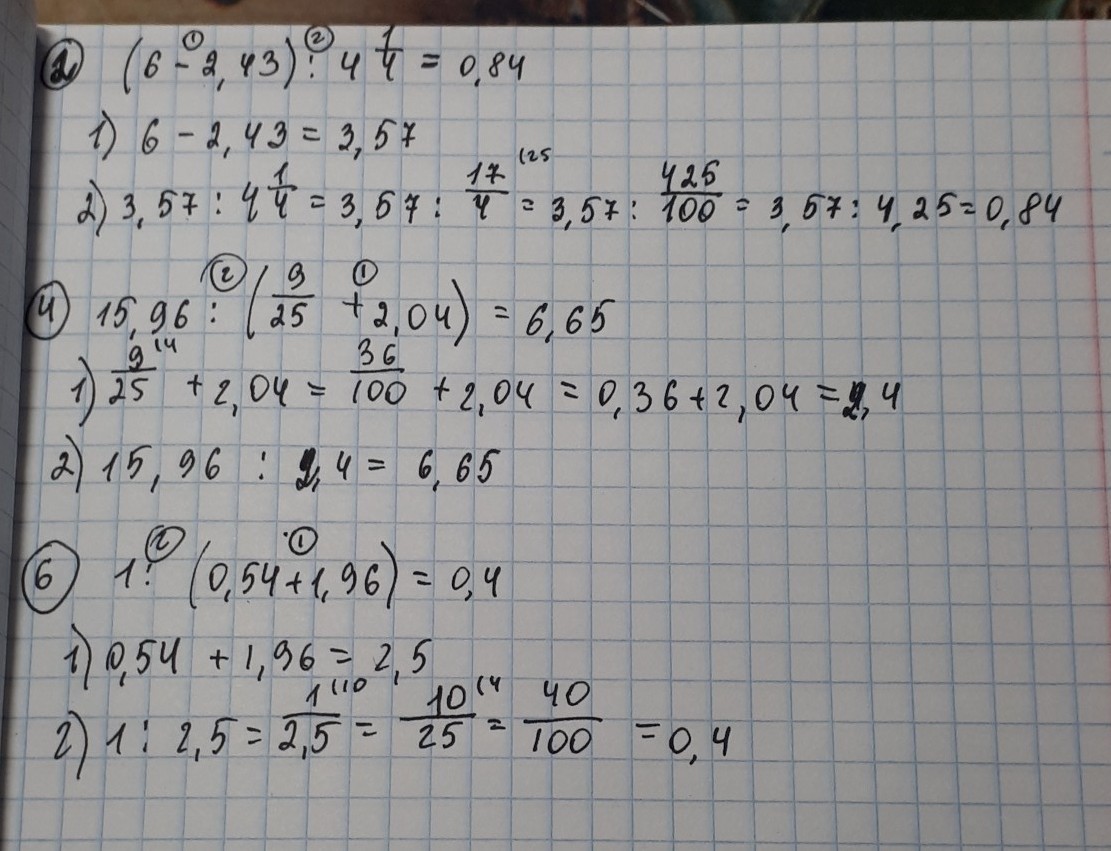 ② (6 - 2,43) : 4 1/4 = 0,84
1) 6 - 2,43 = 3,57
2) 3,57 : 4 1/4 = 3,57 : 17/4 (25 = 3,57 : 425/100 = 3,57 : 4,25 = 0,84
④ 15,96 : (9/25 + 2,04) = 6,65
1) 9/25 (4 + 2,04 = 36/100 + 2,04 = 0,36 + 2,04 = 2,4
2) 15,96 : 2,4 = 6,65
⑥ 1 : (0,54 + 1,96) = 0,4
1) 0,54 + 1,96 = 2,5
2) 1 : 2,5 = 1/2,5 (10 = 10/25 (4 = 40/100 = 0,4